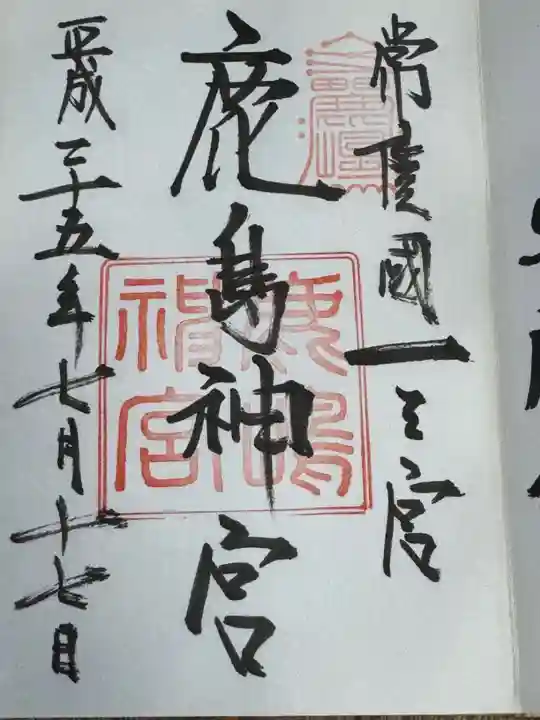 常陸國一之宮
鹿島神宮
鹿嶋神宮
平成二十五年七月十七日